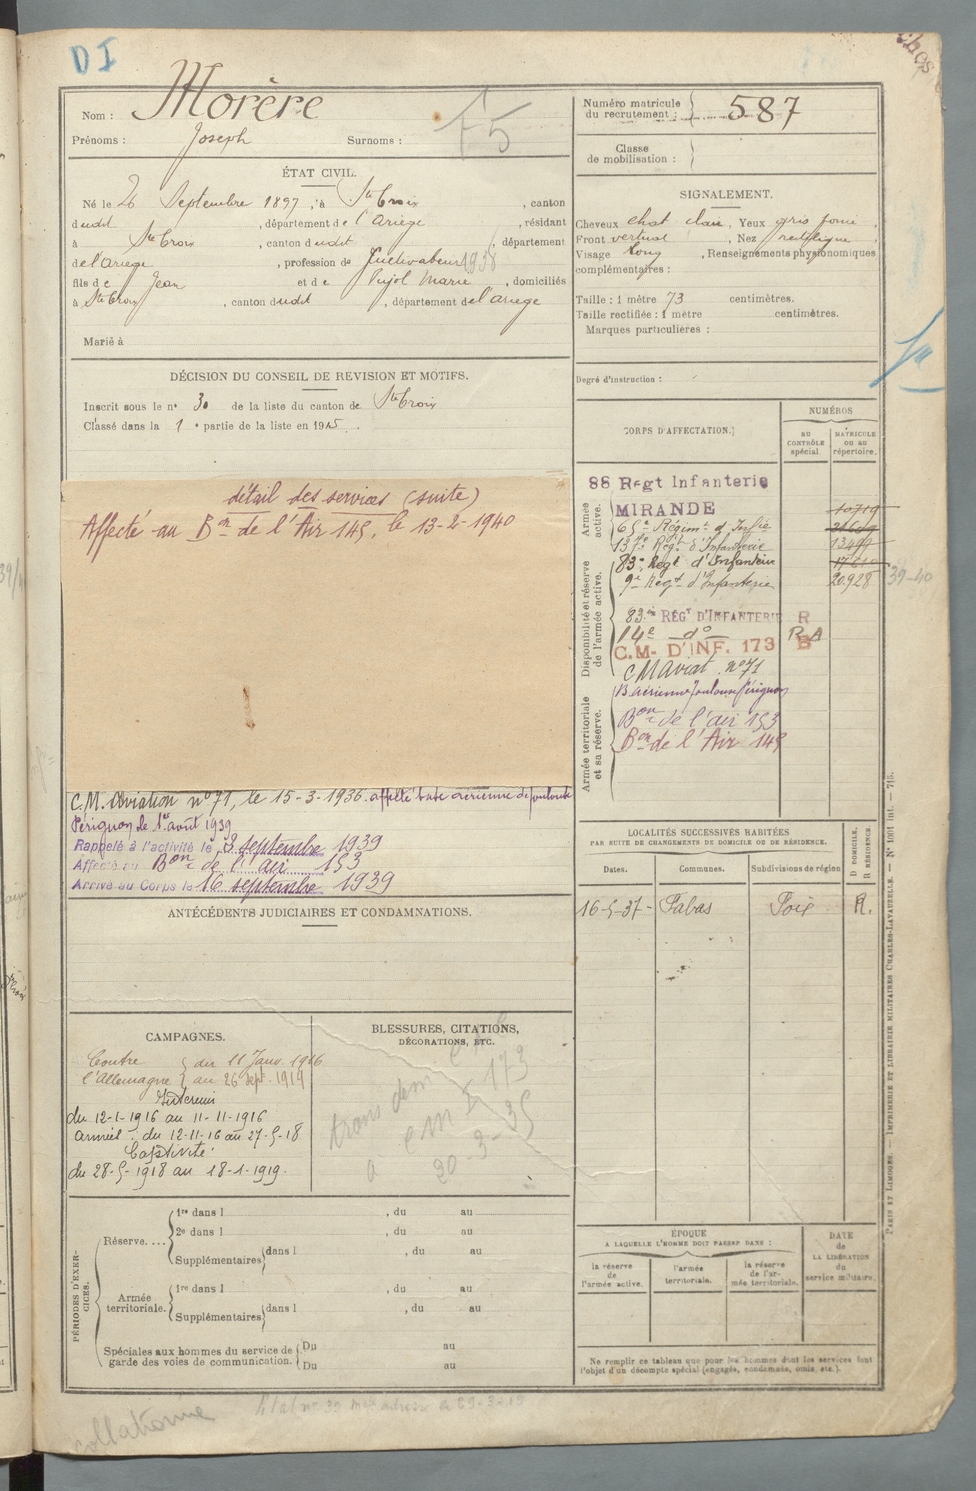 D I
Nom : Morère
Prénoms : Joseph Surnoms :
15
ÉTAT CIVIL.
Né le 26 Septembre 1897, à Ste Croix, canton
dudit, département de l'Ariège, résidant
à Ste Croix, canton dudit, département
de l'ariege, profession de 1938
fils de Jean et de Pujol Marie, domiciliés
à Ste Croix, canton dudit, département de l'ariege
Marié à
DÉCISION DU CONSEIL DE REVISION ET MOTIFS.
Inscrit sous le n° 30 de la liste du canton de Ste Croix
Classé dans la 1e partie de la liste en 1915.
détail des services (suite)
Affecté au Bon de l'Air 145, le 13-2-1940
C.M. Aviation n° 71, le 15-3-1936. affecté base aérienne de Toulouse
Pérignon le 1er août 1939
Rappelé à l'activité le 3 septembre 1939
Affecté au Bon de l'air 153
Arrivé au Corps le 16 septembre 1939
ANTÉCÉDENTS JUDICIAIRES ET CONDAMNATIONS.
CAMPAGNES.
Contre l'Allemagne { du 11 Janv. 1916
au 26 sept. 1919
Intérieur
du 12-1-1916 au 11-11-1916
armées : du 12-11-16 au 27-5-18
Captivité
du 28-5-1918 au 18-1-1919.
BLESSURES, CITATIONS,
DÉCORATIONS, ETC.
173
à 20-3-35
PÉRIODES D'EXERCICES.
Réserve....
1re dans l , du au
2e dans l , du au
Supplémentaires dans l , du au
Armée territoriale.
1re dans l , du au
Supplémentaires dans l , du au
Spéciales aux hommes du service de garde des voies de communication.
Du au
Du au
collationné
Numéro matricule
du recrutement : 587
Classe
de mobilisation :
SIGNALEMENT.
Cheveux chat clair, Yeux gris foncé,
Front vertical, Nez rectiligne,
Visage long, Renseignements physionomiques
complémentaires :
Taille : 1 mètre 73 centimètres.
Taille rectifiée : 1 mètre centimètres.
Marques particulières :
Degré d'instruction :
CORPS D'AFFECTATION.
NUMÉROS
AU CONTRÔLE spécial.
MATRICULE OU AU répertoire.
Armée active.
88 Regt Infanterie
MIRANDE 10719
65e Régimt d'Infie
137e Régt d'Infanterie 13499
Disponibilité et réserve de l'armée active.
83e Regt d'Infanterie
9e Régt d'Infanterie 20928 39-40
83e RÉGT D'INFANTERIE R
14e do R A
C.M. D'INF. 173 B
CM Aviat. n° 71
Armée territoriale et sa réserve.
B aérienne Toulouse Pérignon
Bon de l'air 153
Bon de l'Air 145
LOCALITÉS SUCCESSIVES HABITÉES
PAR SUITE DE CHANGEMENTS DE DOMICILE OU DE RÉSIDENCE.
D DOMICILE.
R RÉSIDENCE.
Dates. Communes. Subdivisions de région
16-5-37- Fabas Foix R.
ÉPOQUE
A LAQUELLE L'HOMME DOIT PASSER DANS :
la réserve de l'armée active.
l'armée territoriale.
la réserve de l'armée territoriale.
DATE
de
LA LIBÉRATION
du
service militaire.
Ne remplir ce tableau que pour les hommes dont les services font
l'objet d'un décompte spécial (engagés, condamnés, omis, etc.).
PARIS ET LIMOGES. — IMPRIMERIE ET LIBRAIRIE MILITAIRES CHARLES-LAVAUZELLE. — N° 1001 int. — 715.